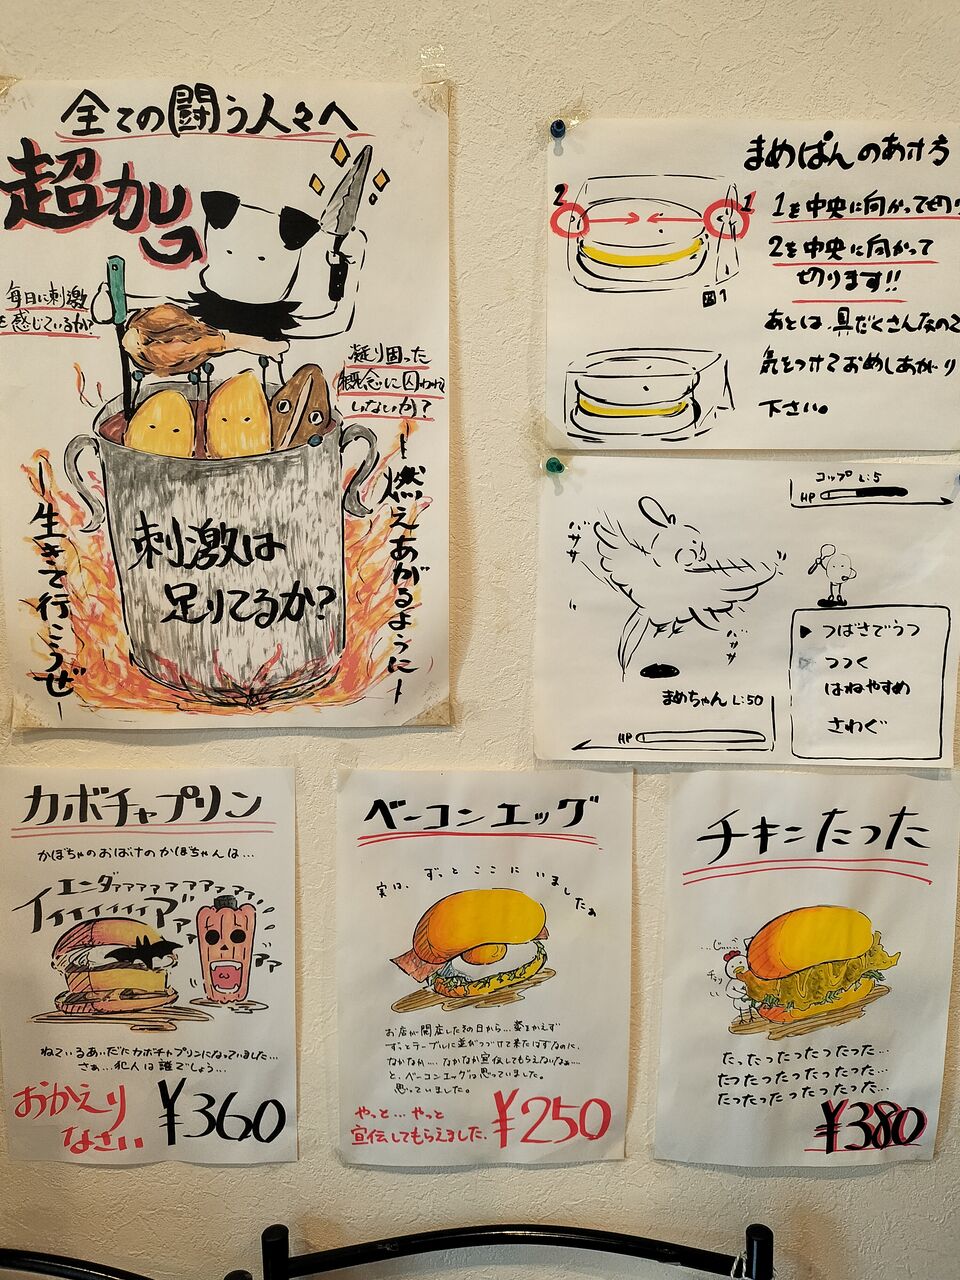 全ての闘う人々へ
超カレー
毎日に刺激
を感じているか?
凝り固った
概念に囚われて
いないか?
刺激は
足りてるか?
ー燃えあがるようにー
ー生きて行こうぜー
まめぱんのあけ方
2
1
1を中央に向かって切り
2を中央に向かって
切ります!!
図1
あとは、具だくさんなので
気をつけておめしあがり
下さい。
コップ L:5
HP
バサササ
バササ
つばさでうつ
つつく
はねやすめ
さわぐ
まめちゃん L:50
HP
カボチャプリン
かぼちゃのおばけのかぼちゃんは…
ねているあいだにカボチャプリンになっていました…
さぁ…犯人は誰でしょう…
おかえり
なさい
¥360
ベーコンエッグ
実は、ずっとここにいましたぁ
お店が開店したその日から…姿をかえず
ずっとテーブルに並びつづけて来たはずなのに、
なかなか…なかなか宣伝してもらえないなぁ…
と、ベーコンエッグは思っていました。
思っていました。
やっと…やっと
宣伝してもらえました。
¥250
チキンたった
…じー…
チラッ
たったったったったった…
たったったったったった…
たったったったったった…
¥380